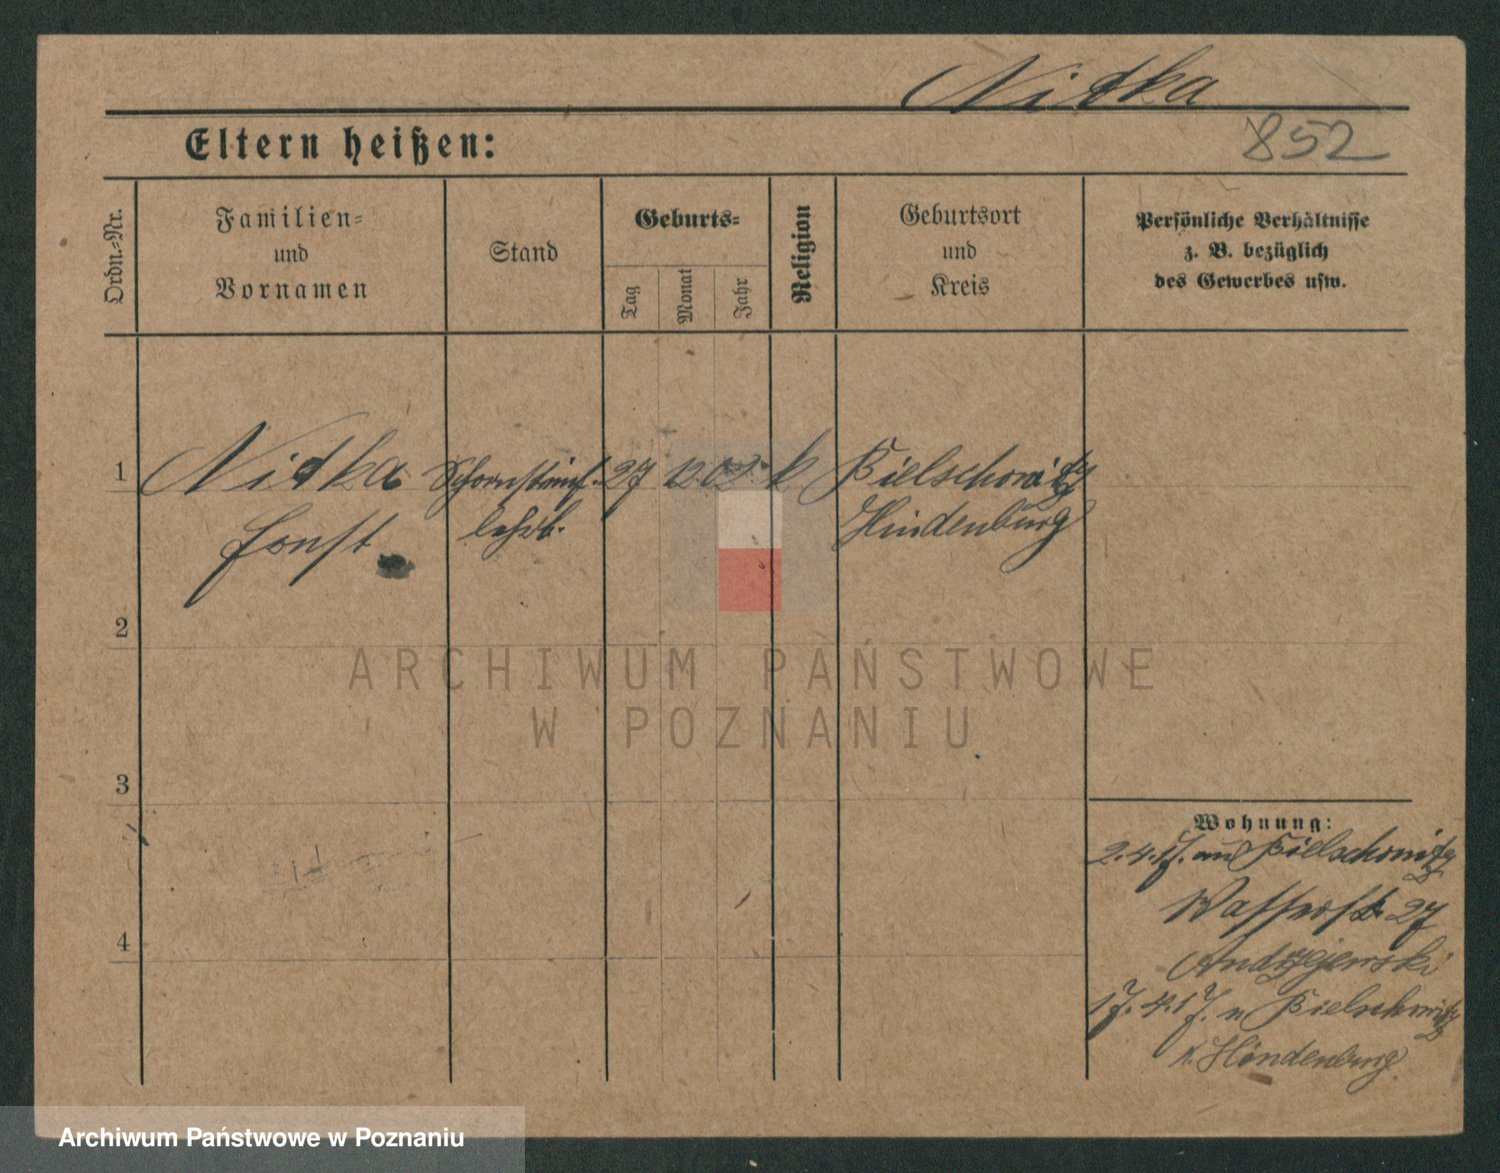 Nidka
852
Eltern heißen:
Ordn.-Nr.
Familien- und Vornamen
Stand
Geburts-
Tag
Monat
Jahr
Religion
Geburtsort und Kreis
Persönliche Verhältnisse z. B. bezüglich des Gewerbes usw.
1
Nidka Schornsteinf. 27 12 02 k Bielschowitz
Ernst lehrl. Hindenburg
2
ARCHIWUM PAŃSTWOWE
W POZNANIU
3
Wohnung:
2.4.17. aus Bielschowitz
Wasserstr. 27
Andrzejewski
17.4.17. n Bielschowitz
K. Hindenburg
4
Archiwum Państwowe w Poznaniu